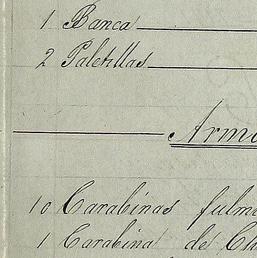 1 Banca
2 Paletillas
Arm
10 Carabinas fulm
1 Carabina de